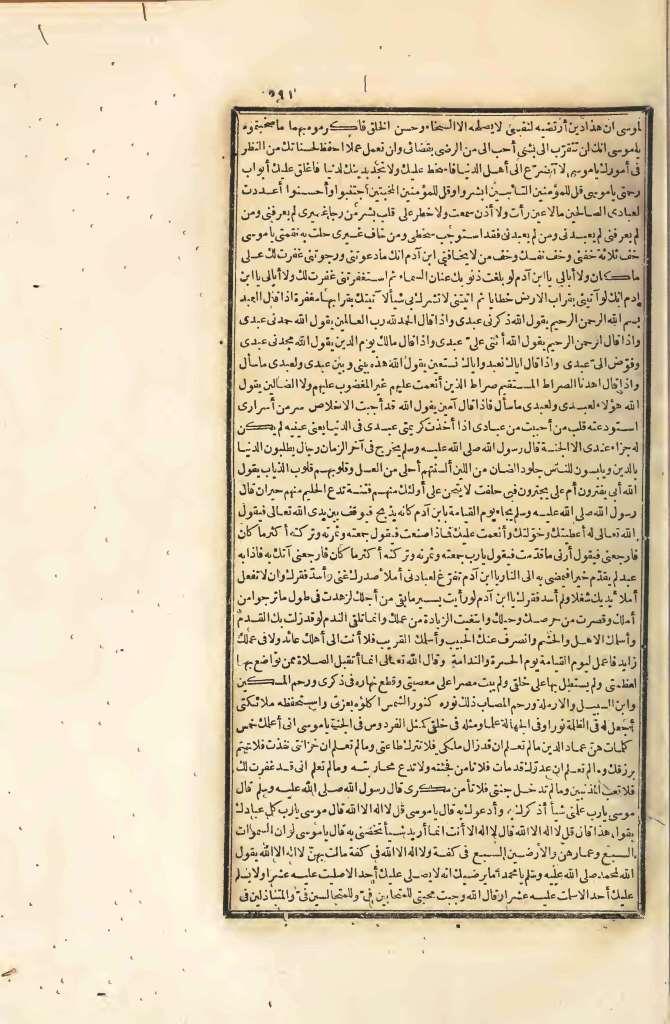 ٢٩١
ياموسى ان هذا دين أرتضيه لنفسى لا يصلحه الا السخاء وحسن الخلق فاكرموه بهما ما صحبتموه
ياموسى انك ان تتقرب الى بشئ أحب الى من الرضى بقضائى وان تعمل عملا احفظ لحسناتك من النظر
فى أمورك ياموسى لا تتضرع الى أهل الدنيا فاسخط عليك ولا تجد بدينك لدنيا فاغلق عليك أبواب
رحمتى ياموسى قل للمؤمنين التائبين ابشروا وقل للمؤمنين المخبتين اجتنبوا وأحسنوا أعددت
لعبادى الصالحين مالا عين رأت ولا أذن سمعت ولا خطر على قلب بشر من رجا غيرى لم يعرفنى ومن
لم يعرفنى لم يعبدنى ومن لم يعبدنى فقد استوجب سخطى ومن خاف غيرى حلت به نقمتى ياموسى
خف ثلاثة خفنى وخف نفسك وخف من لا يخافنى ابن آدم انك مادعوتنى ورجوتنى غفرت لك على
ما كان ولا أبالى يا ابن آدم لو بلغت ذنوبك عنان السماء ثم استغفرتنى غفرت لك ولا أبالى يا ابن
آدم انك لو أتيتنى بقراب الارض خطايا ثم اتيتنى لا تشرك بى شيأ لاتيتك بقرابها مغفرة اذا قال العبد
بسم الله الرحمن الرحيم يقول الله ذكرنى عبدى واذا قال الحمد لله رب العالمين يقول الله حمدنى عبدى
واذا قال الرحمن الرحيم يقول الله أثنى على عبدى واذا قال مالك يوم الدين يقول الله مجدنى عبدى
وفوض الى عبدى واذا قال اياك نعبد واياك نستعين يقول الله هذه بينى وبين عبدى ولعبدى ماسأل
واذا قال اهدنا الصراط المستقيم صراط الذين أنعمت عليهم غير المغضوب عليهم ولا الضالين يقول
الله هؤلاء لعبدى ولعبدى ماسأل فاذا قال آمين يقول الله قد أجبت الاخلاص سر من أسرارى
استودعته قلب من أحببت من عبادى اذا أخذت كريمتى عبدى فى الدنيا يعنى عينيه لم يكن
له جزاء عندى الا الجنة قال رسول الله صلى الله عليه وسلم يخرج فى آخر الزمان رجال يطلبون الدنيا
بالدين ويلبسون للناس جلود الضان من اللين ألسنتهم أحلى من العسل وقلوبهم قلوب الذياب يقول
الله أبى يغترون أم على يجترون فبى حلفت لابعثن على أولئك منهم فتنة تدع الحليم منهم حيران قال
رسول الله صلى الله عليه وسلم يجاء يوم القيامة بابن آدم كانه بذيح فيوقف بين يدى الله تعالى فيقول
الله تعالى له أعطيتك وخولتك وأنعمت عليك فماذا صنعت فيقول جمعته وثمرته وتركته أكثر ما كان
فارجعنى فيقول أرنى ما قدمت فيقول يارب جمعته وثمرته وتركته أكثر ما كان فارجعنى آتك به فاذا به
عبد لم يقدم خيرا فيمضى به الى النار يا ابن آدم تفرغ لعبادتى أملأ صدرك غنى وأسد فقرك وان لا تفعل
أملأ يديك شغلا ولم أسد فقرك يا ابن آدم لو رأيت يسير ما بقى من أجلك لزهدت فى طول ما ترجو من
أملك وقصرت من حرصك وحيلك وابتغيت الزيادة من عملك وانما تلقى الندم لو قد زلت بك القدم
وأسلمك الاهل والحشم وانصرف عنك الحبيب وأسلمك القريب فلا أنت الى أهلك عائد ولا فى عملك
زايد فاعمل ليوم القيامة يوم الحسرة والندامة وقال الله تعالى انما أتقبل الصلاة ممن تواضع بها
لعظمتى ولم يستطل بها على خلقى ولم يبت مصرا على معصيتى وقطع نهاره فى ذكرى ورحم المسكين
وابن السبيل والارملة ورحم المصاب ذلك نوره كنور الشمس اكلؤه بعزتى واستحفظه ملائكتى
أجعل له فى الظلمة نورا وفى الجهالة علما ومثله فى خلقى كمثل الفردوس فى الجنة ياموسى انى أعلمك خمس
كلمات هن عماد الدين مالم تعلم ان قد زال ملكى فلا تترك طاعتى ومالم تعلم ان خزائنى نفدت فلا تهتم
برزقك ومالم تعلم ان عدوك قد مات فلا تامن فجئته ولا تدع محاربته ومالم تعلم انى قد غفرت لك
فلا تعب المذنبين ومالم تدخل جنتى فلا تأمن مكرى قال رسول الله صلى الله عليه وسلم قال
موسى يارب علمنى شيأ أذكرك وأدعوك به قال ياموسى قل لا اله الا الله قال موسى يارب كل عبادك
يقول هذا قال قل لا اله الا الله قال لا اله الا أنت انما أريد شيأ تخصنى به قال ياموسى لو ان السموات
السبع وعمارهن والارضين السبع فى كفة ولا اله الا الله فى كفة مالت بهن لا اله الا الله يقول
الله لمحمد صلى الله عليه وسلم يا محمد أما يرضيك انه لا يصلى عليك أحد الا صليت عليه عشرا ولا يسلم
عليك أحد الا سلمت عليه عشرا وقال الله وجبت محبتى للمتحابين فى وللمتجالسين فى والمتباذلين فى